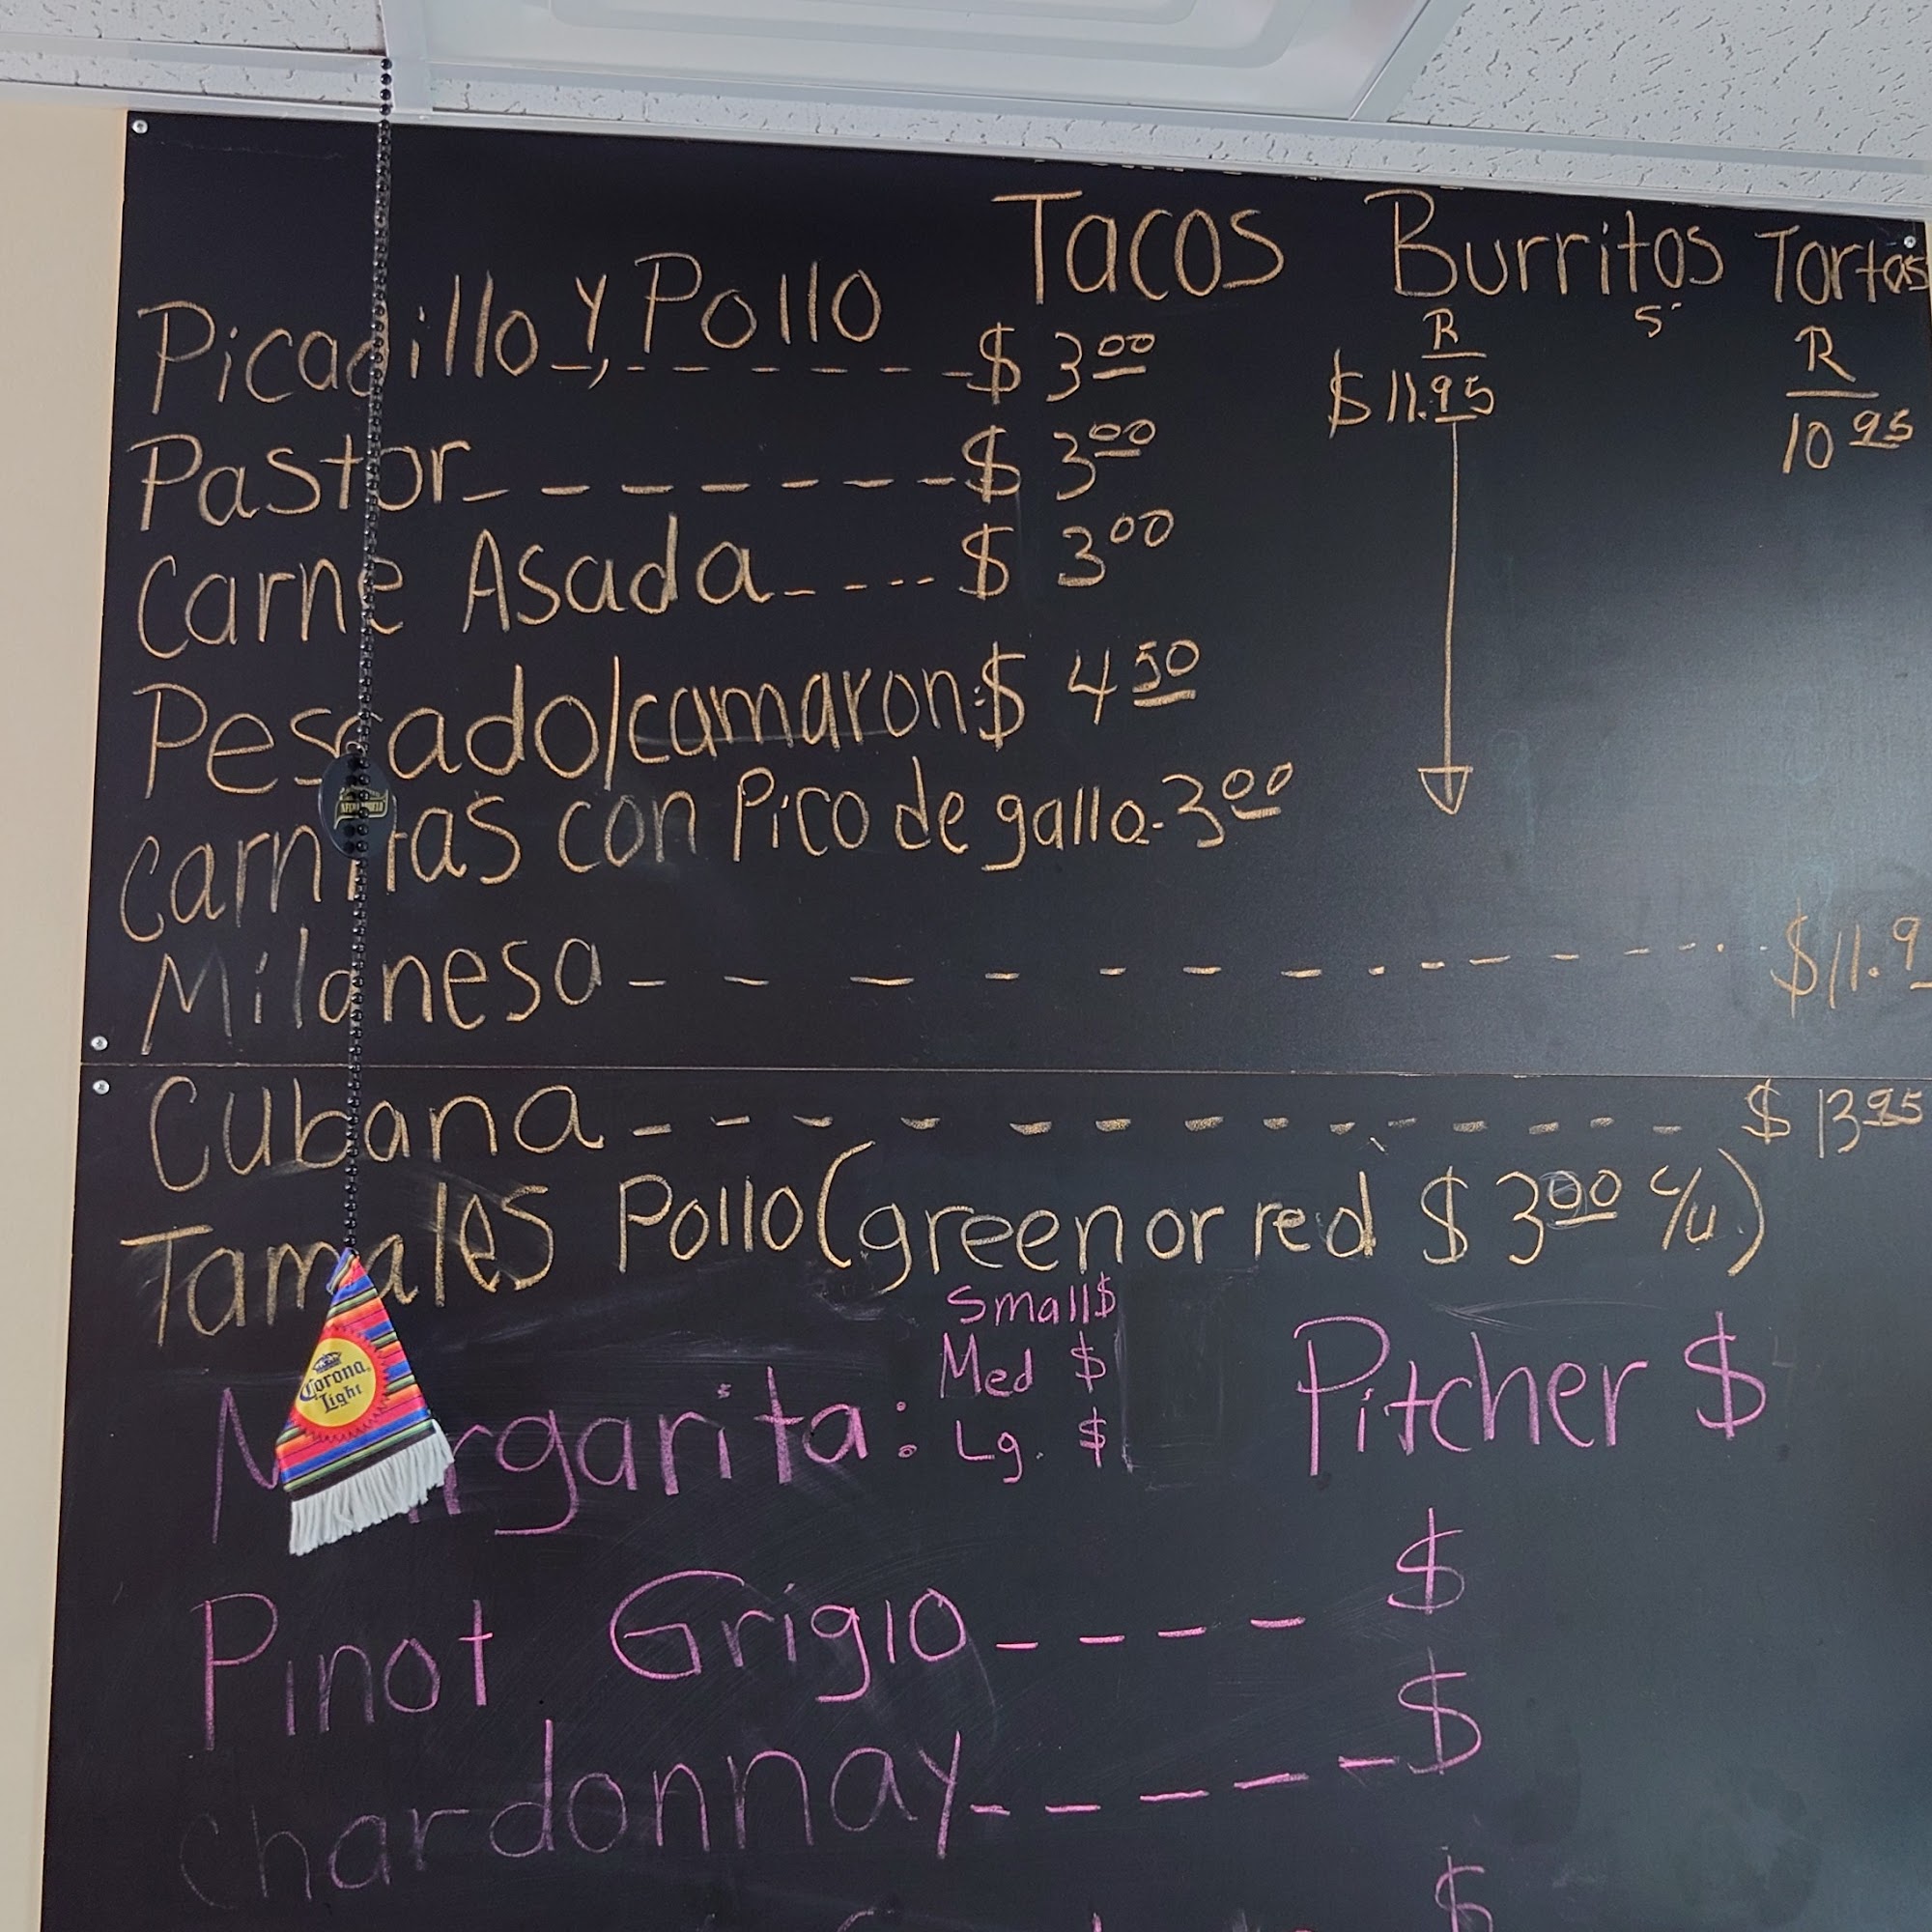 Tacos Burritos Tortas
Picadillo y Pollo $ 3.00 R $11.95 R 10.95
Pastor $ 3.00
Carne Asada $ 3.00
Pescado/camaron $ 4.50
Carnitas con Pico de gallo 3.00
Milanesa $11.9
Cubana $ 13.95
Tamales Pollo (green or red $ 3.00 c/u)
Small $
Med $
Margarita: Lg. $ Pitcher $
Corona
Light
Pinot Grigio $
Chardonnay $
$